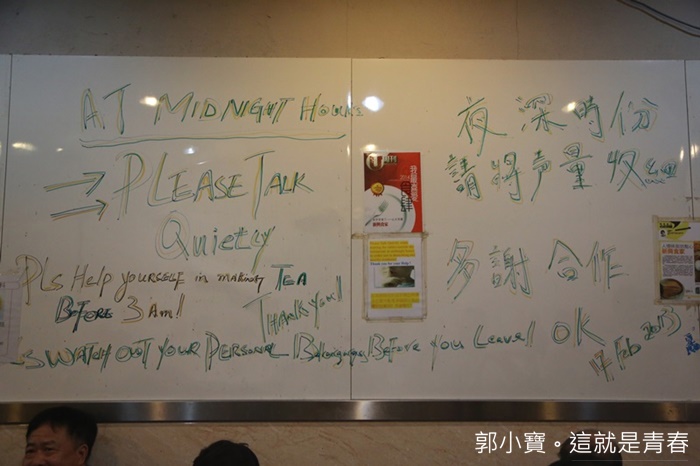 AT MIDNIGHT Hours
PLEASE TALK
Quietly
Pls Help yourself in making TEA
Before 3am!
THANK you!
WATCH OUT YOUR Personal Belonging Before You Leave! OK
夜深时份
請将声量收细
多謝合作
4 Feb 2013
2014
郭小寶。這就是青春